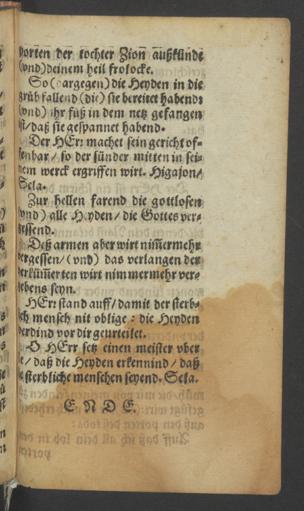 porten der tochter Zion außkünde
(vnd) deinem heil frolocke.
So (dargegen) die Heyden in die
grüb fallend (die) sie bereitet habend:
(vnd) ihr füß in dem netz gefangen
ist/ daß sie gespannet habend.
Der HErr machet sein gericht of-
fenbar/ so der sünder mitten in sei-
nem werck ergriffen wirt. Higaion/
Sela.
Zur hellen farend die gottlosen
(vnd) alle Heyden/ die Gottes ver-
gessend.
Deß armen aber wirt nim̃ermehr
vergessen/ (vnd) das verlangen der
verküm̃erten wirt nimmermehr ver-
gebens seyn.
HErr stand auff/ damit der sterb-
lich mensch nit oblige: die Heyden
werdind vor dir geurteilet.
O HErr setz einen meister vber
sie/ daß die Heyden erkennind/ daß
sie sterbliche menschen seyend. Sela.
ENDE.